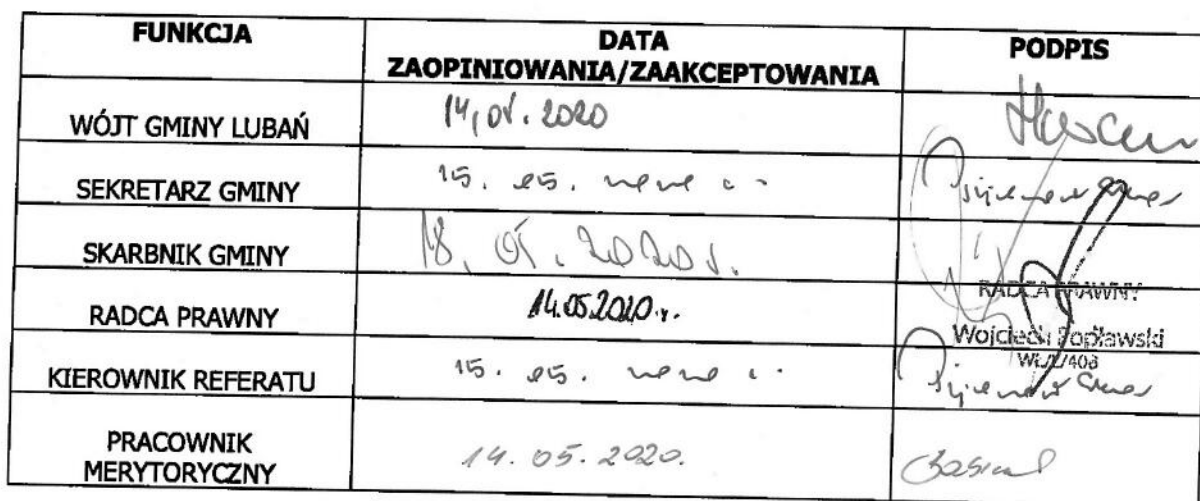 FUNKCJA
DATA
ZAOPINIOWANIA/ZAAKCEPTOWANIA
PODPIS
WÓJT GMINY LUBAŃ
14,05.2020
SEKRETARZ GMINY
15. 05.
SKARBNIK GMINY
18. 05. 2020 r.
RADCA PRAWNY
14.05.2020 r.
RADCA PRAWNY
Wojciech Popławski
KIEROWNIK REFERATU
15. 05.
PRACOWNIK
MERYTORYCZNY
14. 05. 2020.